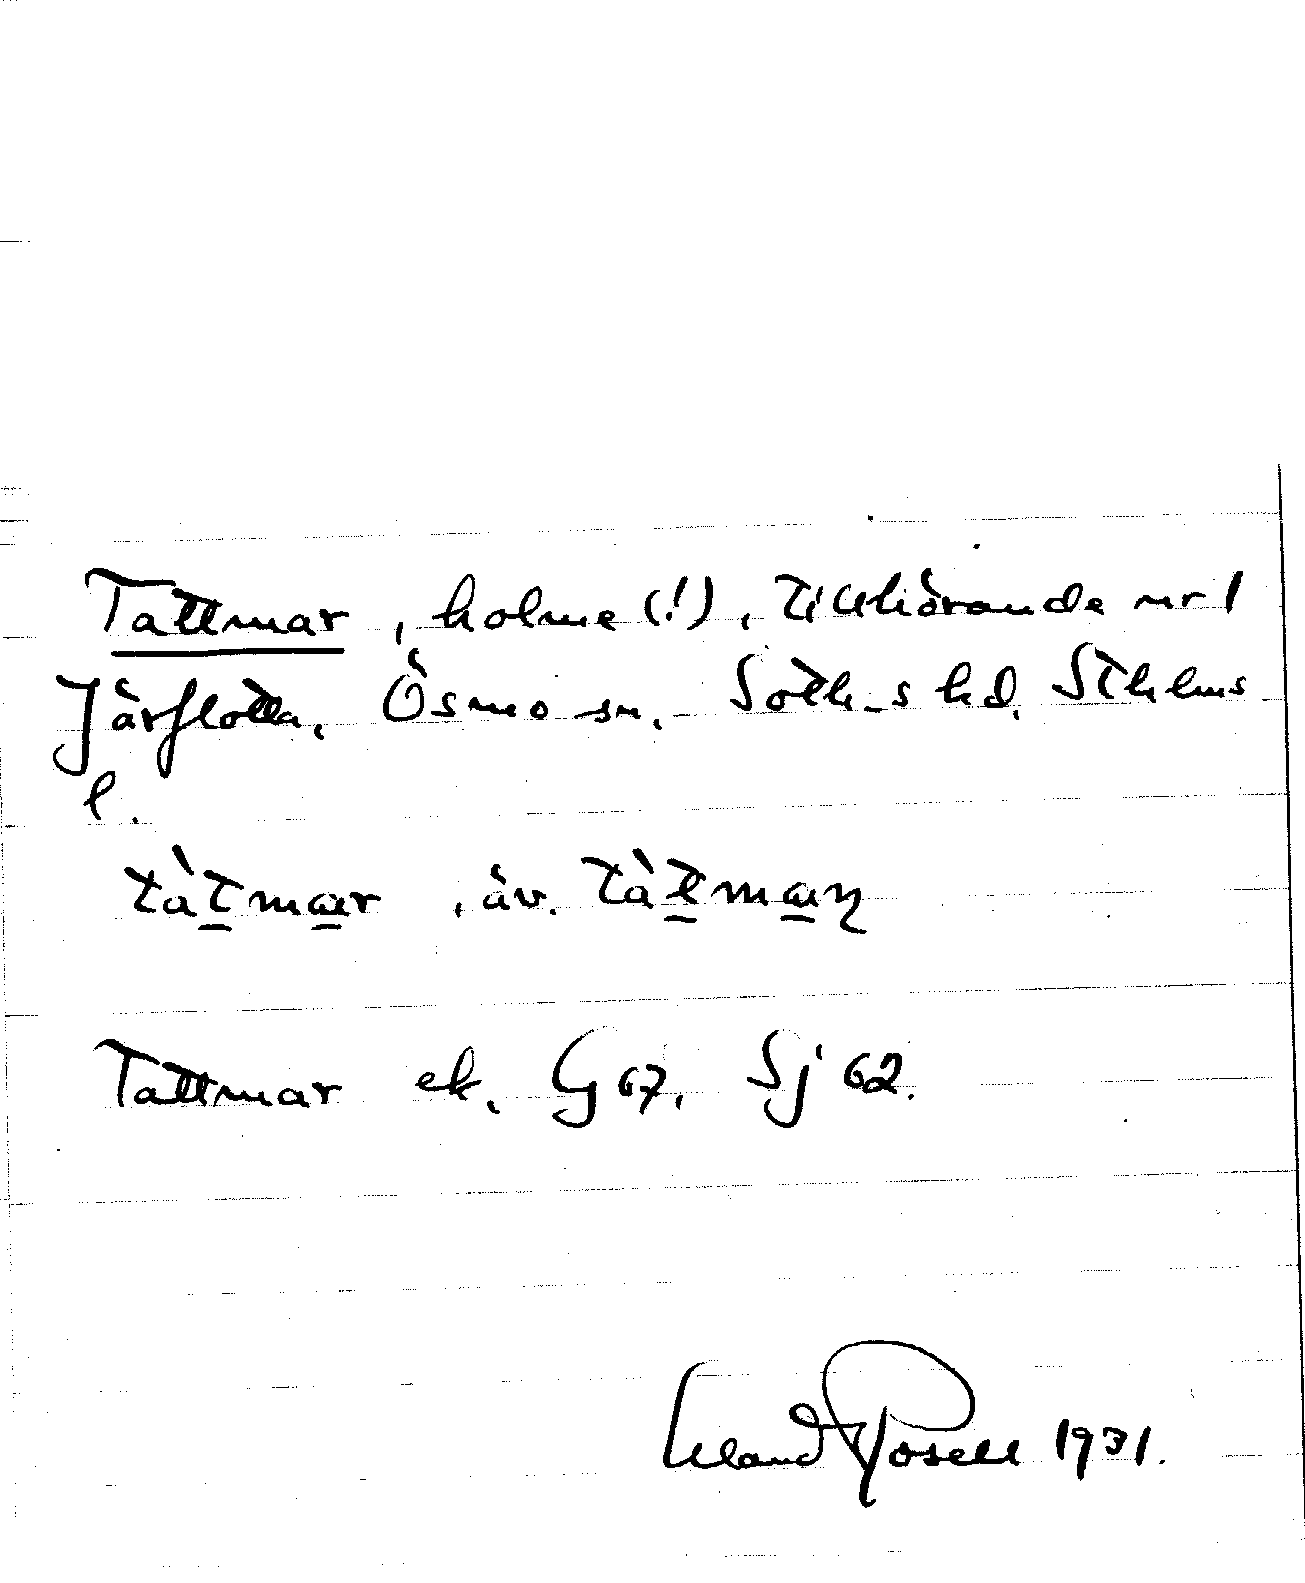 Tattmar, holme (!), tillhörande nr 1
Järflotta, Ösmo sn, Soth-s hd, Sthlms
l.
tàt̲ma̲r, äv. tàt̲ma̲ɳ
Tattmar ek. G 67, Sj 62.
Erland Rosell 1931.